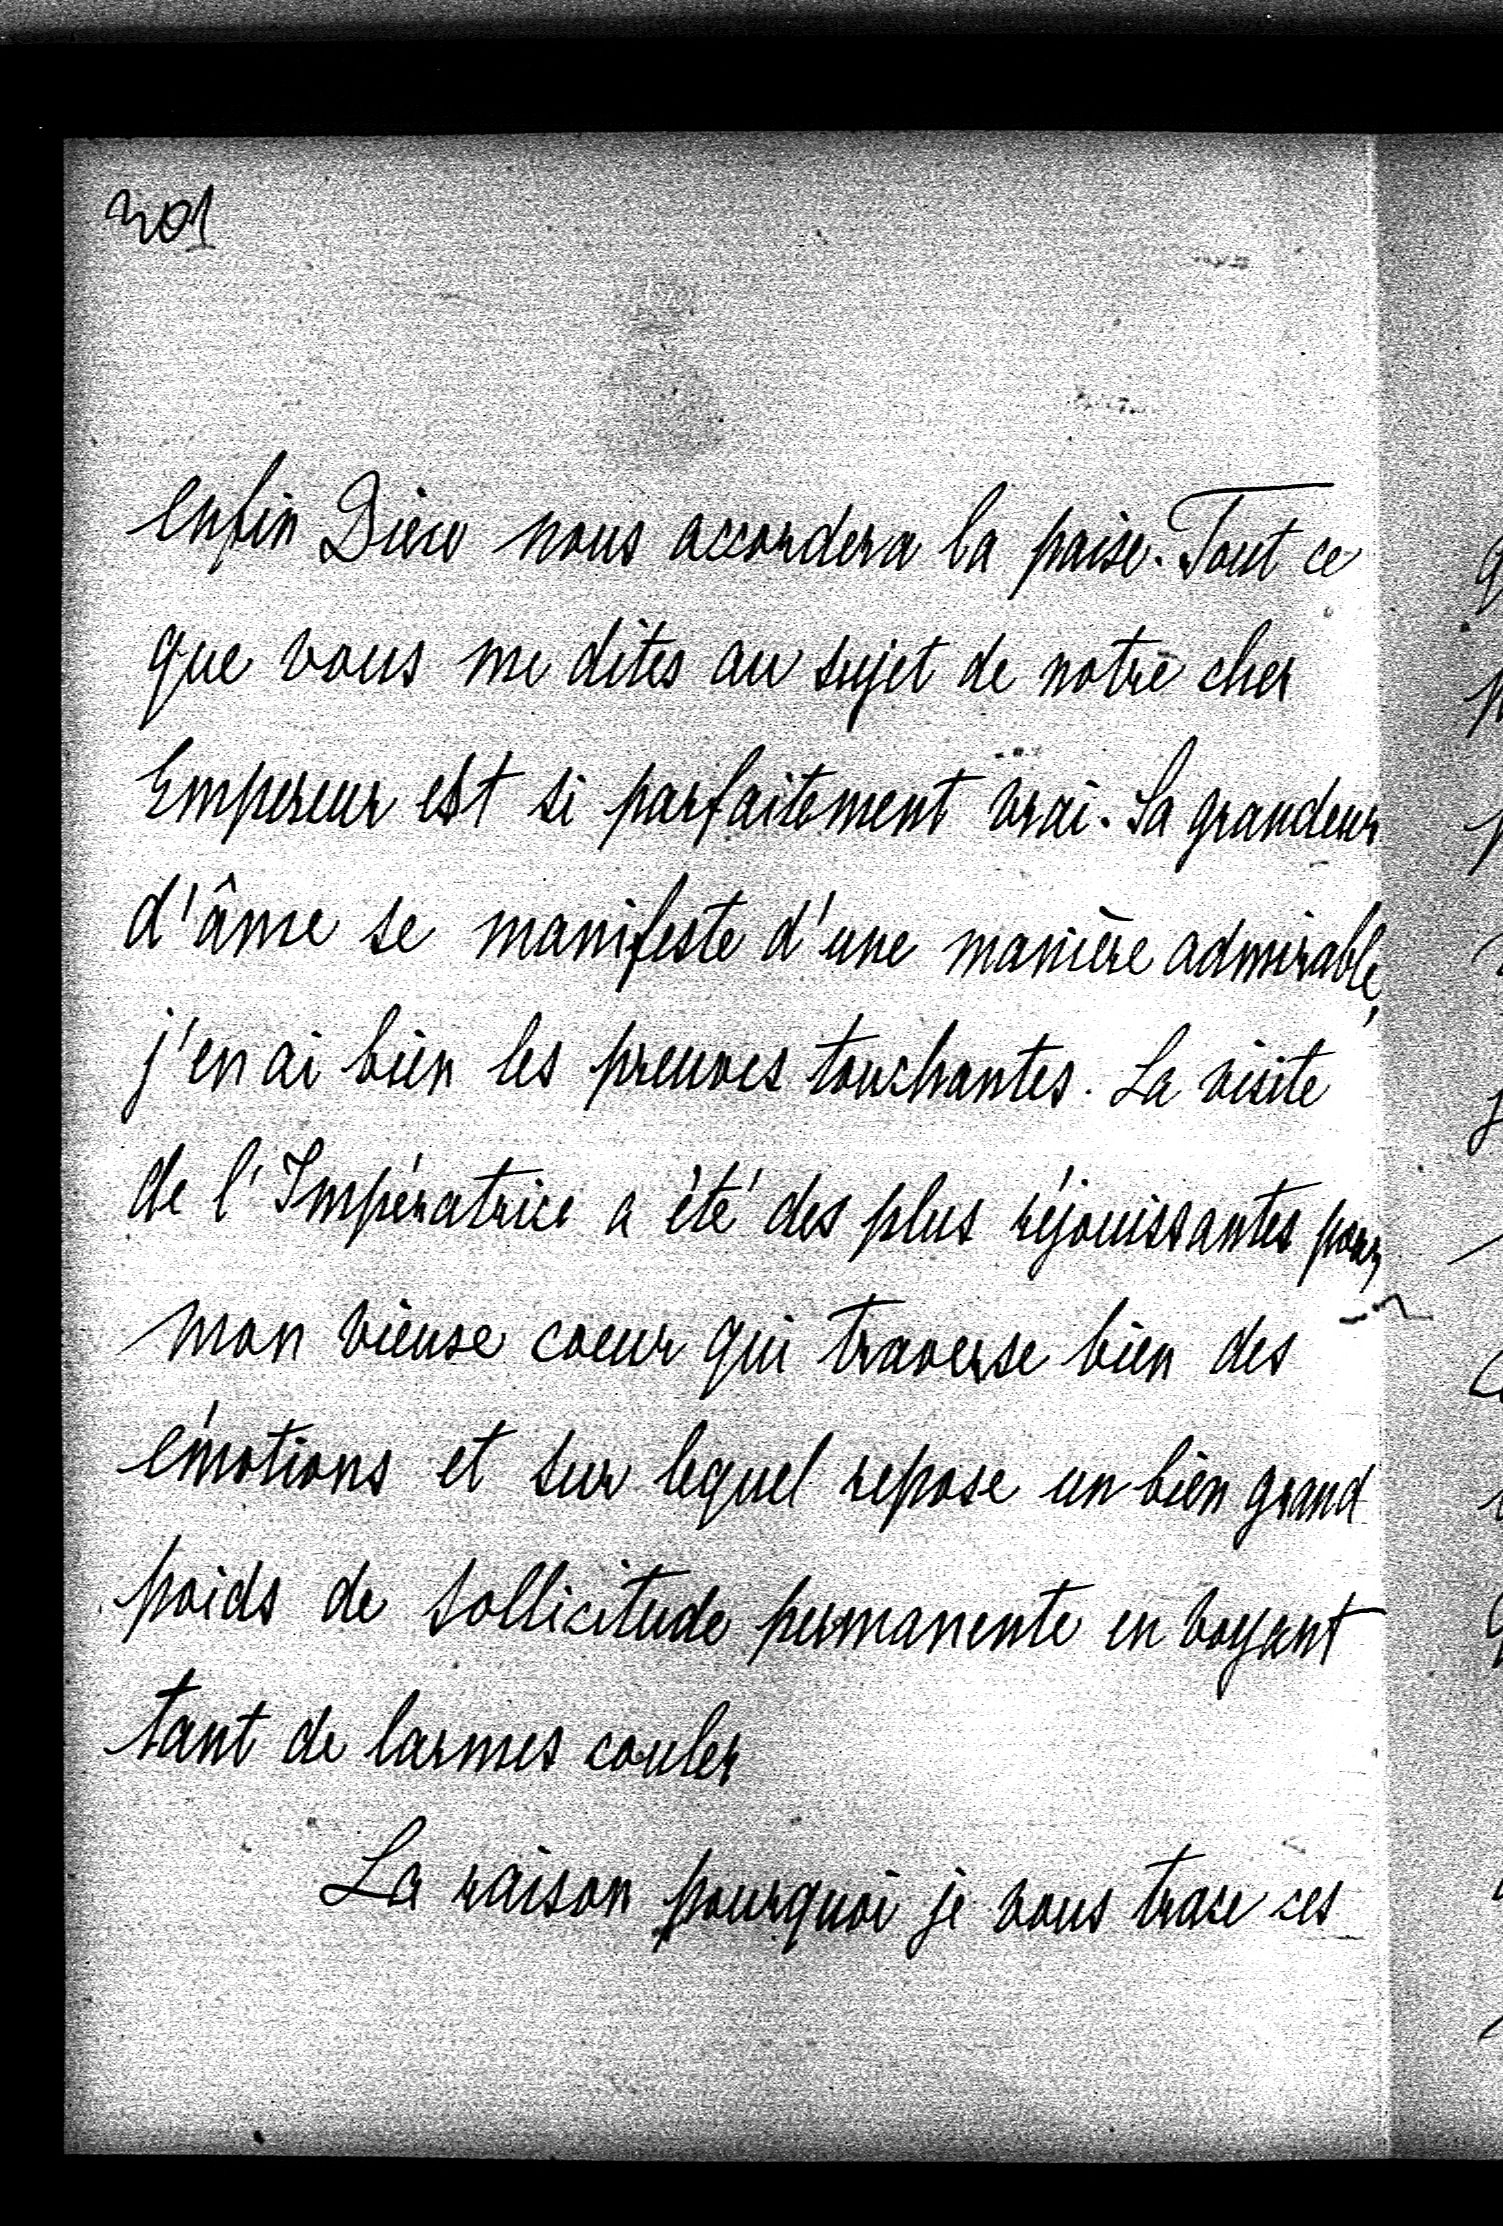 201
enfin Dieu nous accordera la paise. Tout ce
que vous me dites au sujet de notre cher
Empereur est si parfaitement vrai. Sa grandeur
d'âme se manifeste d'une manière admirable,
j'en ai bien les preuves touchantes. La visite
de l'Impératrice a été des plus réjouissantes pour
mon vieuse coeur qui traverse bien des
émotions et sur lequel repose un bien grand
poids de sollicitude permanente en voyant
tant de larmes couler
La raison pourquoi je vous trace ces